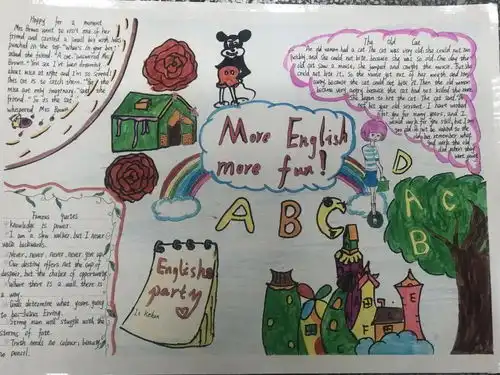 Happy for a moment
Mrs Brown went to visit one of her
friend and carried a small box with holes
punched in the top. "What's in your box?"
asked the friend. "A cat." answered Mrs
Brown. "You see I've been dreaming
about mice at night and I'm so scared!
This cat is to catch them." "But the
mice are only imaginary," said the
friend. "So is the cat,"
whispered Mrs Brown.
The old Cat
An old woman had a cat. The cat was very old; she could not run
quickly, and she could not bite, because she was so old. One day the
old cat saw a mouse; she jumped and caught the mouse. But she
could not bite it. So the mouse got out of her mouth and ran
away, because the cat could not bite it. Then the old woman
became very angry because the cat had not killed the mouse.
She began to hit the cat. The cat said,
not hit your old servant. I have worked
for you for many years, and I
would work for you still, but I
too old.
remember what
good work the old
did when
were young
More English
more fun!
A B C
D
A C
B
E
F
English
party
Famous quotes
Knowledge is power.
I am a slow walker, but I never
walk backwards.
Never, never, never, never give up.
Our destiny offers not the cup of
despair, but the chance of opportunity.
Where there is a will, there is
a way.
determine what you're going
to be.
Strong man will struggle with the
storms of fate.
Truth needs no colour; beauty
no pencil.